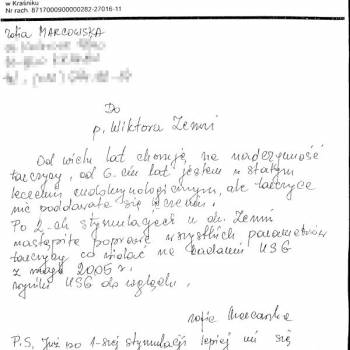 w Kraśniku
Nr rach. 8717000900000282-27016-11
Zofia MARCOWSKA
Do
p. Wiktora Zemni
Od wielu lat choruję na nadczynność
tarczycy, od 6-ciu lat jestem w stałym
leczeniu endokrynologicznym, ale tarczyca
nie poddawała się leczeniu.
Po 2-ch stymulacjach u dr. Zemni
nastąpiła poprawa wszystkich parametrów
tarczycy co widać na badaniu USG
z maja 2005 r.
wyniki USG do wglądu.
Zofia Marcowska
P.S. Już po 1-szej stymulacji lepiej mi się